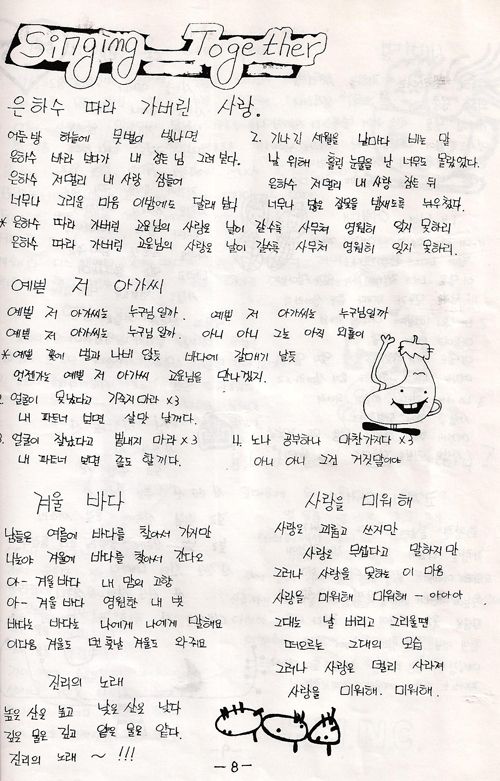 Singing Together
은하수 따라 가버린 사랑.
어둔밤 하늘에 뭇별이 빛나면
은하수 바라보다가 내 잠든 님 그려본다.
은하수 저멀리 내 사랑 잠들어
너무나 그리운 마음 이밤에도 달래보네
* 은하수 따라 가버린 고운님의 사랑은 날이 갈수록 사무쳐 영원히 잊지 못하리
은하수 따라 가버린 고운님의 사랑은 날이 갈수록 사무쳐 영원히 잊지 못하리.
2. 기나긴 세월을 날마다 비는 말
날 위해 흘린 눈물을 난 너무도 몰랐었다.
은하수 저멀리 내 사랑 잠든 뒤
너무나 많은 잘못을 밤새도록 뉘우쳤다.
예쁜 저 아가씨
예쁜 저 아가씨는 누구님일까. 예쁜 저 아가씨는 누구님일까
예쁜 저 아가씨는 누구님일까. 아니 아니 그는 아직 외톨이
* 예쁜 꽃에 벌과 나비 앉듯 바다에 갈매기 날듯
언젠가는 예쁜 저 아가씨 고운님을 만나겠지.
2. 얼굴이 못났다고 기죽지마라 x3
내 파트너 보면 살맛 날꺼다.
3. 얼굴이 잘났다고 뽐내지 마라 x3
내 파트너 보면 졸도 할끼다.
4. 노나 공부하나 마찬가지다 x3
아니 아니 그건 거짓말이야
겨울 바다
남들은 여름에 바다를 찾아서 가지만
나는야 겨울에 바다를 찾아서 간다오
아- 겨울바다 내 맘의 고향
아- 겨울바다 영원한 내 벗
바다는 바다는 나에게 나에게 말해요
이다음 겨울도 먼 훗날 겨울도 와줘요
진리의 노래
높은 산은 높고 낮은 산은 낮다
깊은 물은 깊고 얕은 물은 얕다.
진리의 노래 ~ !!!
사랑을 미워해
사랑은 괴롭고 쓰지만
사랑은 무섭다고 말하지만
그러나 사랑을 못하는 이 마음
사랑을 미워해 미워해 - 아아아
그대는 날 버리고 그리울땐
떠오르는 그대의 모습
그러나 사랑은 멀리 사라져
사랑을 미워해. 미워해.
- 8 -